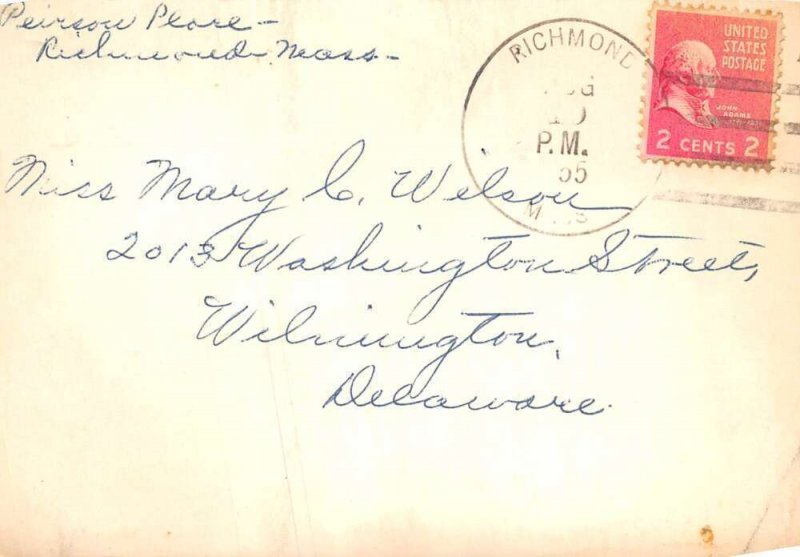 Peirson Place -
Richmond - Mass -
RICHMOND
AUG
P.M.
55
MASS
UNITED
STATES
POSTAGE
JOHN
ADAMS
2 CENTS 2
Miss Mary C. Wilson
2013 Washington Street,
Wilmington,
Delaware.